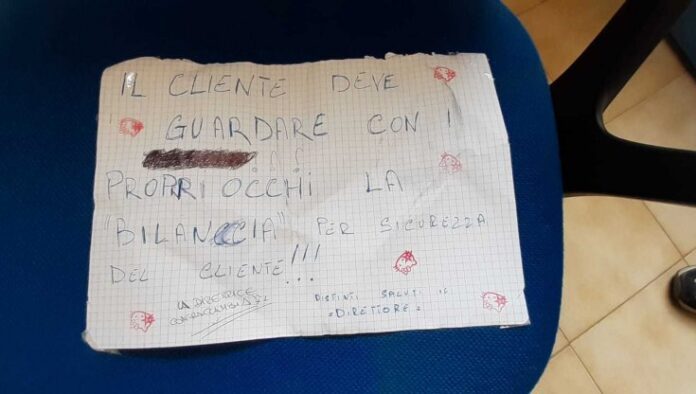 IL CLIENTE DEVE
GUARDARE CON I
PROPRRI OCCHI LA
"BILANCCIA" PER SICUREZZA
DEL CLIENTE!!!
LA DIRETRICE
DISTINTI SALUTI IL
"DIRETTORE"